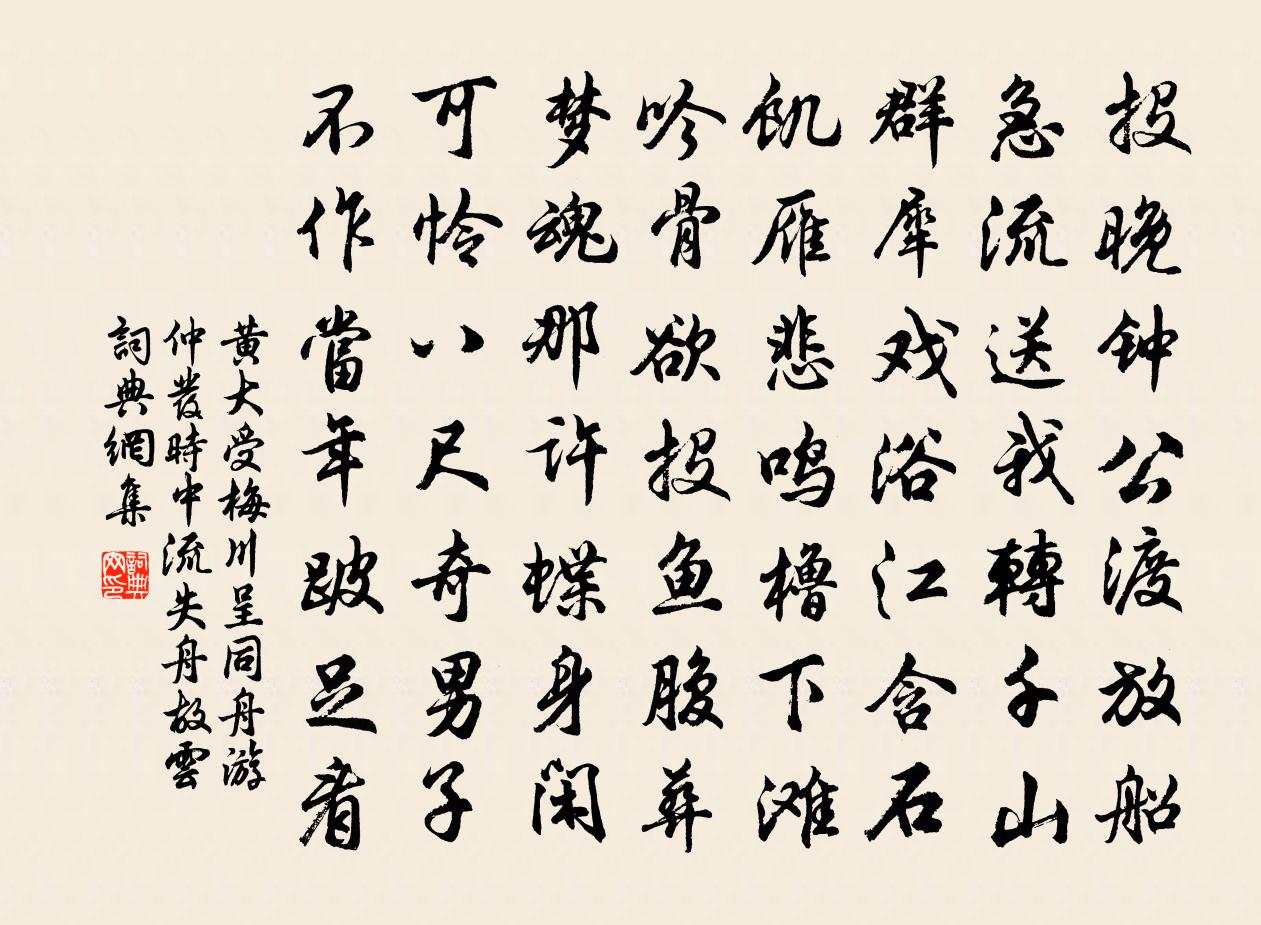 投晚钟公渡放船
急流送我轉千山
群犀戏浴江含石
饥雁悲鸣橹下滩
吟骨欲投鱼腹葬
梦魂那许蝶身闲
可怜八尺奇男子
不作當年跛足看
黄大受梅川呈同舟游
仲發時中流失舟故雲
詞典網集
詞典
网印